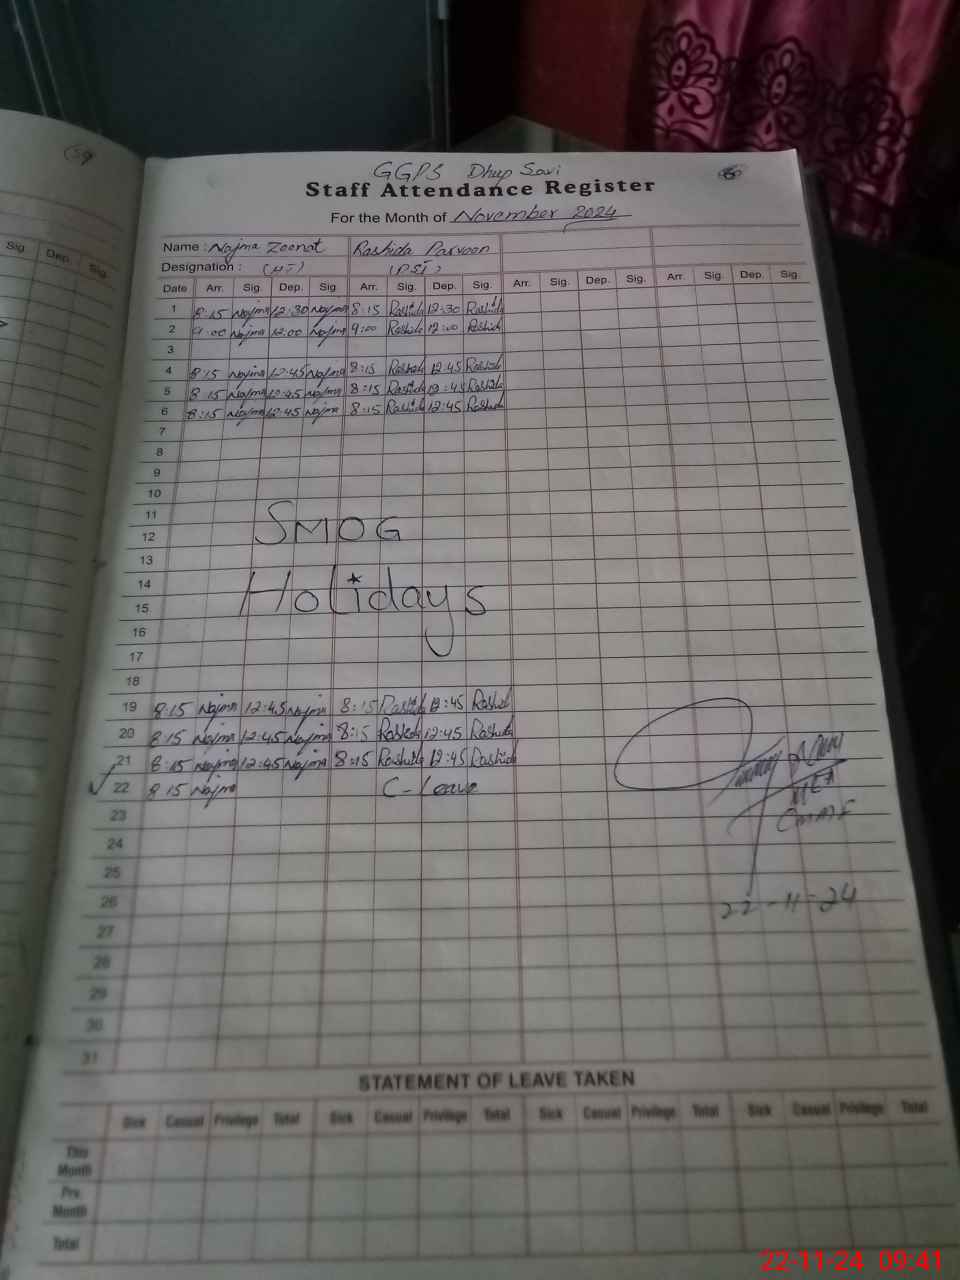 59
GGPS Dhup Sari
60
Staff Attendance Register
For the Month of November 2024
Name : Najma Zeenat Rashida Parveen
Designation : (HT) (PST)
Sig. Dep. Sig.
Date Arr. Sig. Dep. Sig. Arr. Sig. Dep. Sig. Arr. Sig. Dep. Sig. Arr. Sig. Dep. Sig.
1 8:15 Najma 12:30 Najma 8:15 Rashida 12:30 Rashida
2 9:00 Najma 12:00 Najma 9:00 Rashida 12:00 Rashida
3
4 8:15 Najma 12:45 Najma 8:15 Rashida 12:45 Rashida
5 8:15 Najma 12:45 Najma 8:15 Rashida 12:45 Rashida
6 8:15 Najma 12:45 Najma 8:15 Rashida 12:45 Rashida
7
8
9
10
11
SMOG
12
13
14
Holidays
15
16
17
18
19 8:15 Najma 12:45 Najma 8:15 Rashida 12:45 Rashida
20 8:15 Najma 12:45 Najma 8:15 Rashida 12:45 Rashida
21 8:15 Najma 12:45 Najma 8:15 Rashida 12:45 Rashida
22 8:15 Najma C-Leave
MEA
23
24
25
26 22-11-24
27
28
29
30
31
STATEMENT OF LEAVE TAKEN
Sick Casual Privilege Total Sick Casual Privilege Total Sick Casual Privilege Total Sick Casual Privilege Total
This Month
Prv. Month
Total
22-11-24 09:41